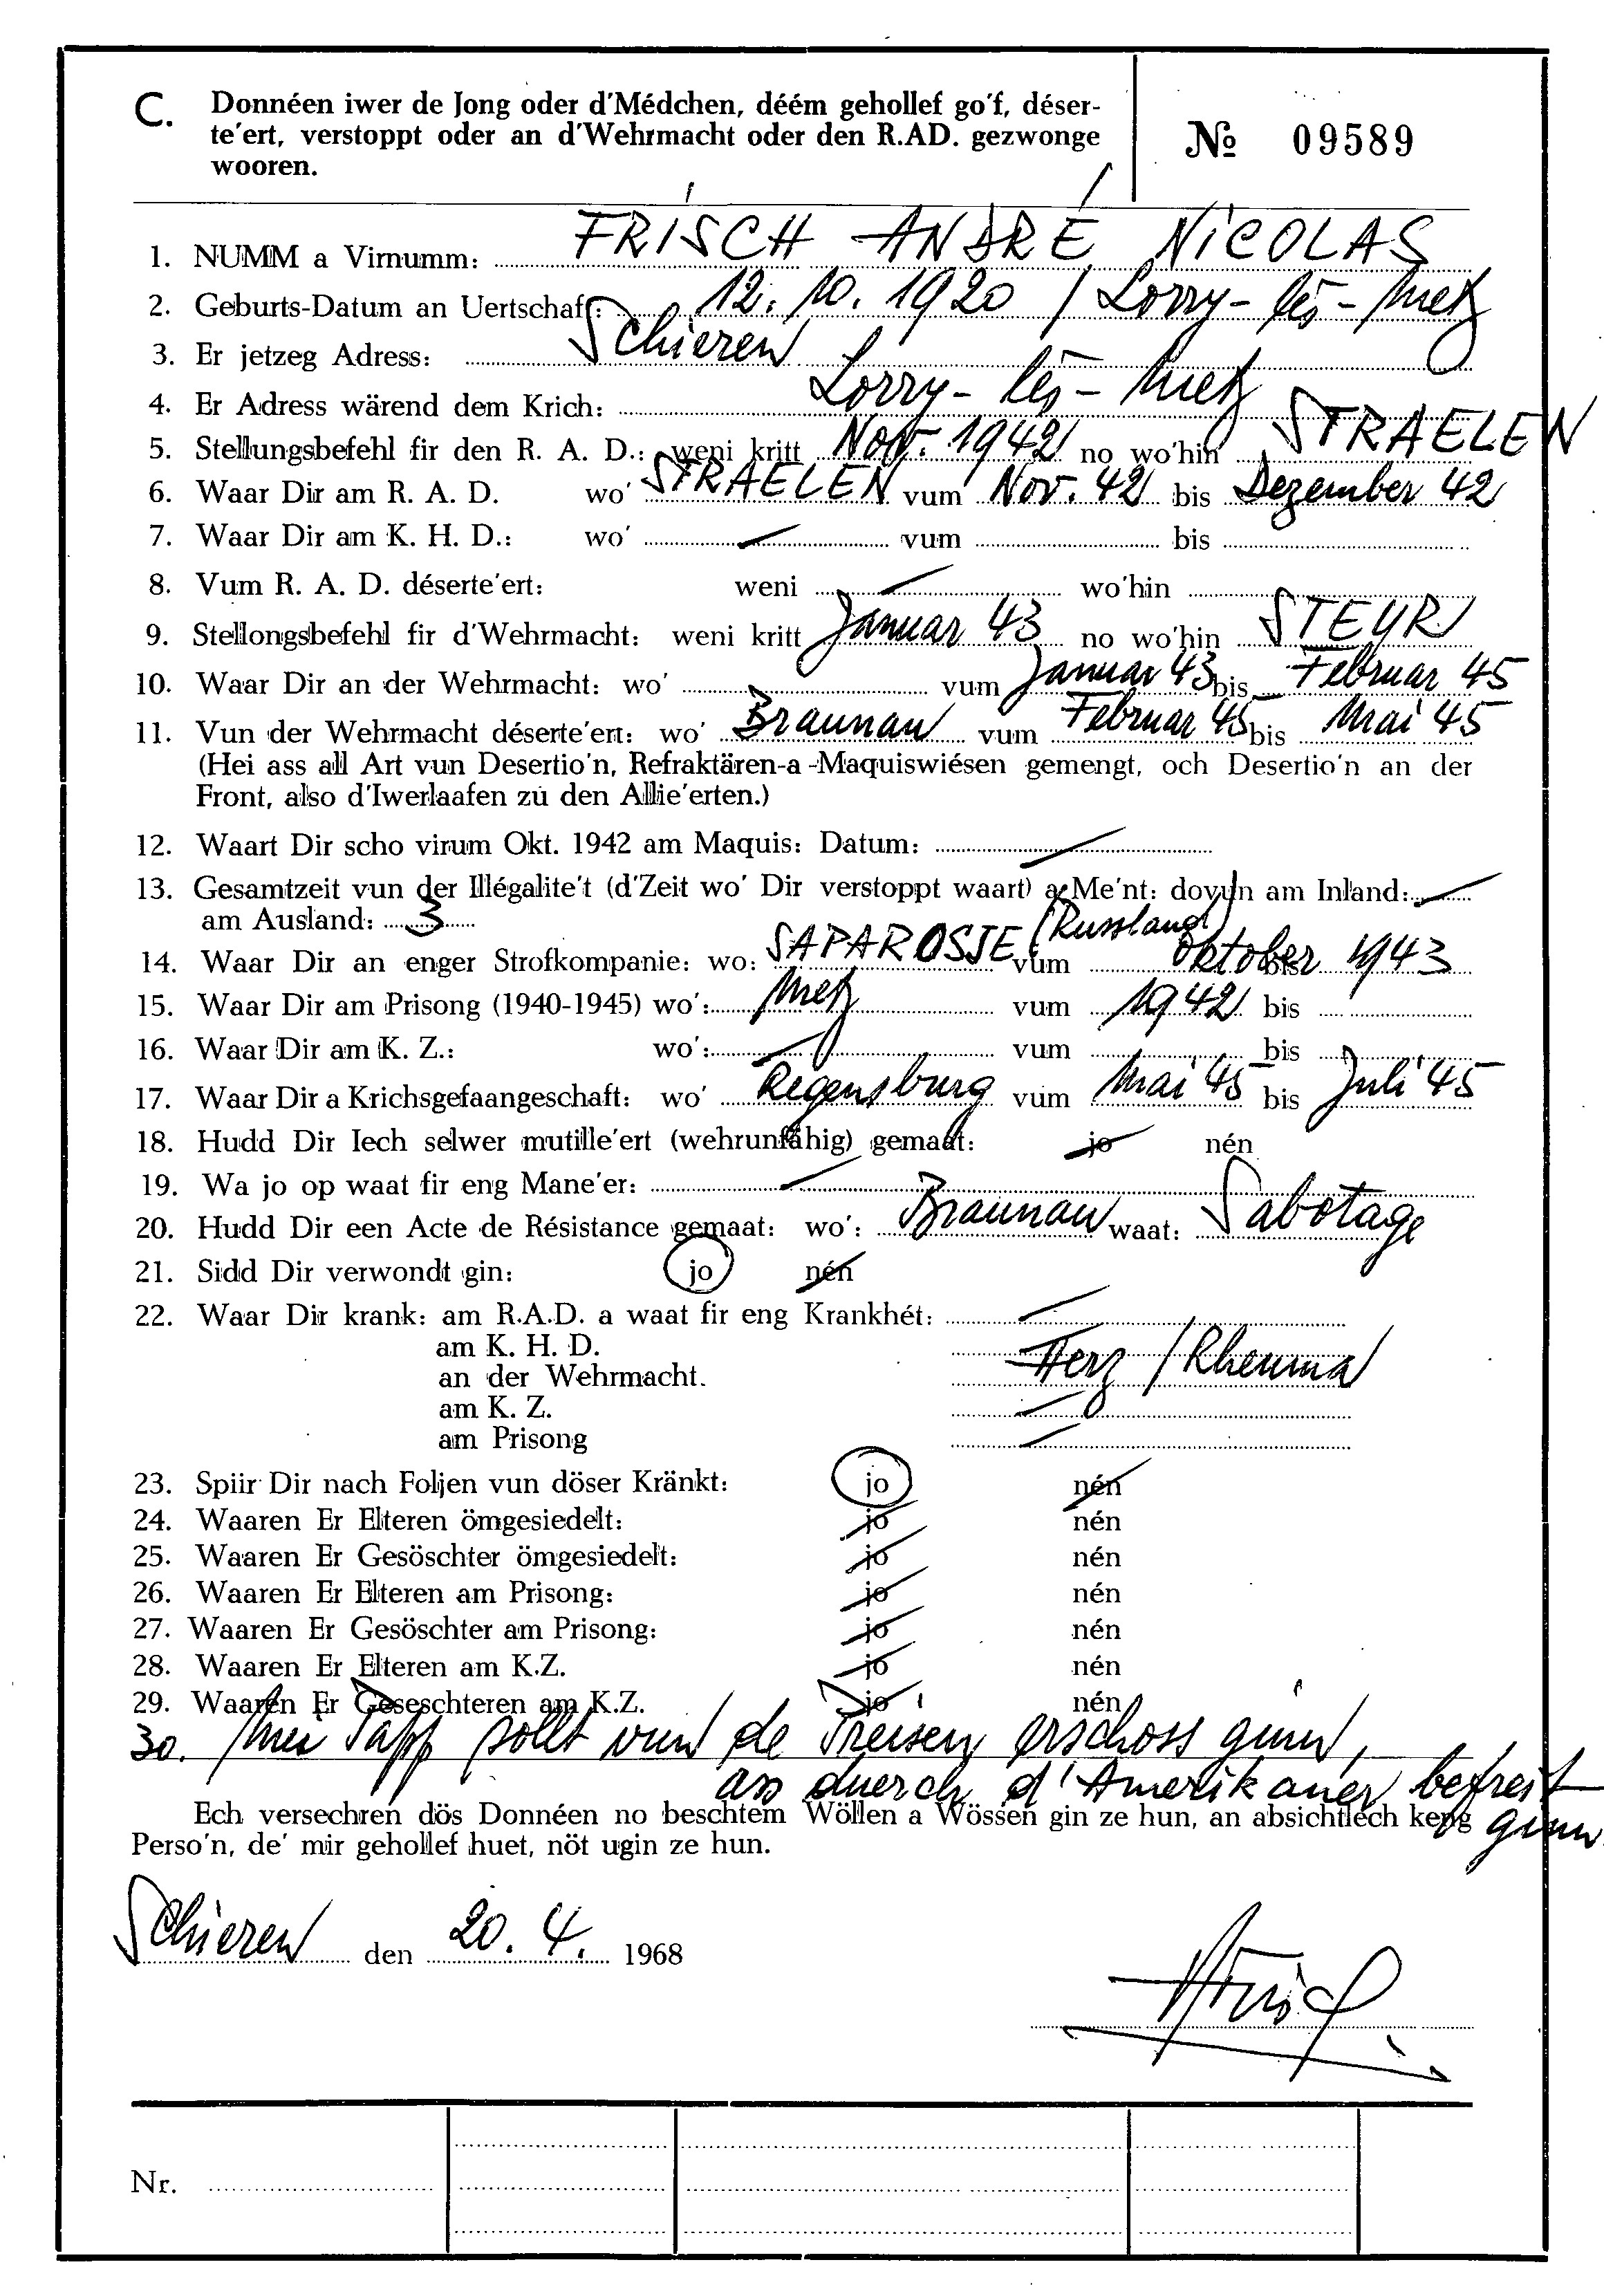 C. Donnéen iwer de Jong oder d'Médchen, déém gehollef go'f, déser-
te'ert, verstoppt oder an d'Wehrmacht oder den R.AD. gezwonge
wooren.
№ 09589
1. NUMM a Virnumm: FRISCH ANDRÉ NICOLAS
2. Geburts-Datum an Uertschaft: 12. 10. 1920 / Lorry-lès-Metz
3. Er jetzeg Adress: Schieren
4. Er Adress wärend dem Krich: Lorry-lès-Metz
5. Stellungsbefehl fir den R. A. D.: weni kritt Nov. 1942 no wo'hin STRAELEN
6. Waar Dir am R. A. D. wo' STRAELEN vum Nov. 42 bis Dezember 42
7. Waar Dir am K. H. D.: wo' vum bis
8. Vum R. A. D. déserte'ert: weni wo'hin
9. Stellongsbefehl fir d'Wehrmacht: weni kritt Januar 43 no wo'hin STEYR
10. Waar Dir an der Wehrmacht: wo' vum Januar 43 bis Februar 45
11. Vun der Wehrmacht déserte'ert: wo' Braunau vum Februar 45 bis Mai 45
(Hei ass all Art vun Desertio'n, Refraktären-a -Maquiswiésen gemengt, och Desertio'n an der
Front, also d'Iwerlaafen zu den Allie'erten.)
12. Waart Dir scho virum Okt. 1942 am Maquis: Datum:
13. Gesamtzeit vun der Illégalite't (d'Zeit wo' Dir verstoppt waart) a Me'nt: dovun am Inland:
am Ausland: 3
14. Waar Dir an enger Strofkompanie: wo: SAPAROSJE (Russland) vum oktober bis 1943
15. Waar Dir am Prisong (1940-1945) wo': Metz vum 1942 bis
16. Waar Dir am K. Z.: wo': vum bis
17. Waar Dir a Krichsgefaangeschaft: wo' Regensburg vum Mai 45 bis Juli 45
18. Hudd Dir Iech selwer mutille'ert (wehrunfähig) gemaat: jo nén
19. Wa jo op waat fir eng Mane'er:
20. Hudd Dir een Acte de Résistance gemaat: wo': Braunau waat: Sabotage
21. Sidd Dir verwondt gin: jo nén
22. Waar Dir krank: am R.A.D. a waat fir eng Krankhét:
am K. H. D.
an der Wehrmacht. Herz / Rheuma
am K. Z.
am Prisong
23. Spiir Dir nach Foljen vun döser Kränkt: jo nén
24. Waaren Er Elteren ömgesiedelt: jo nén
25. Waaren Er Gesöschter ömgesiedelt: jo nén
26. Waaren Er Elteren am Prisong: jo nén
27. Waaren Er Gesöschter am Prisong: jo nén
28. Waaren Er Elteren am K.Z. jo nén
29. Waaren Er Geseschteren am K.Z. jo nén
30. Mei Papp sollt vun de Preisen erschoss ginn,
as duerch d'Amerikaner befreit
ginn
Ech versechren dös Donnéen no beschtem Wöllen a Wössen gin ze hun, an absichtlech keng
Perso'n, de' mir gehollef huet, nöt ugin ze hun.
Schieren den 20. 4. 1968
Nr.